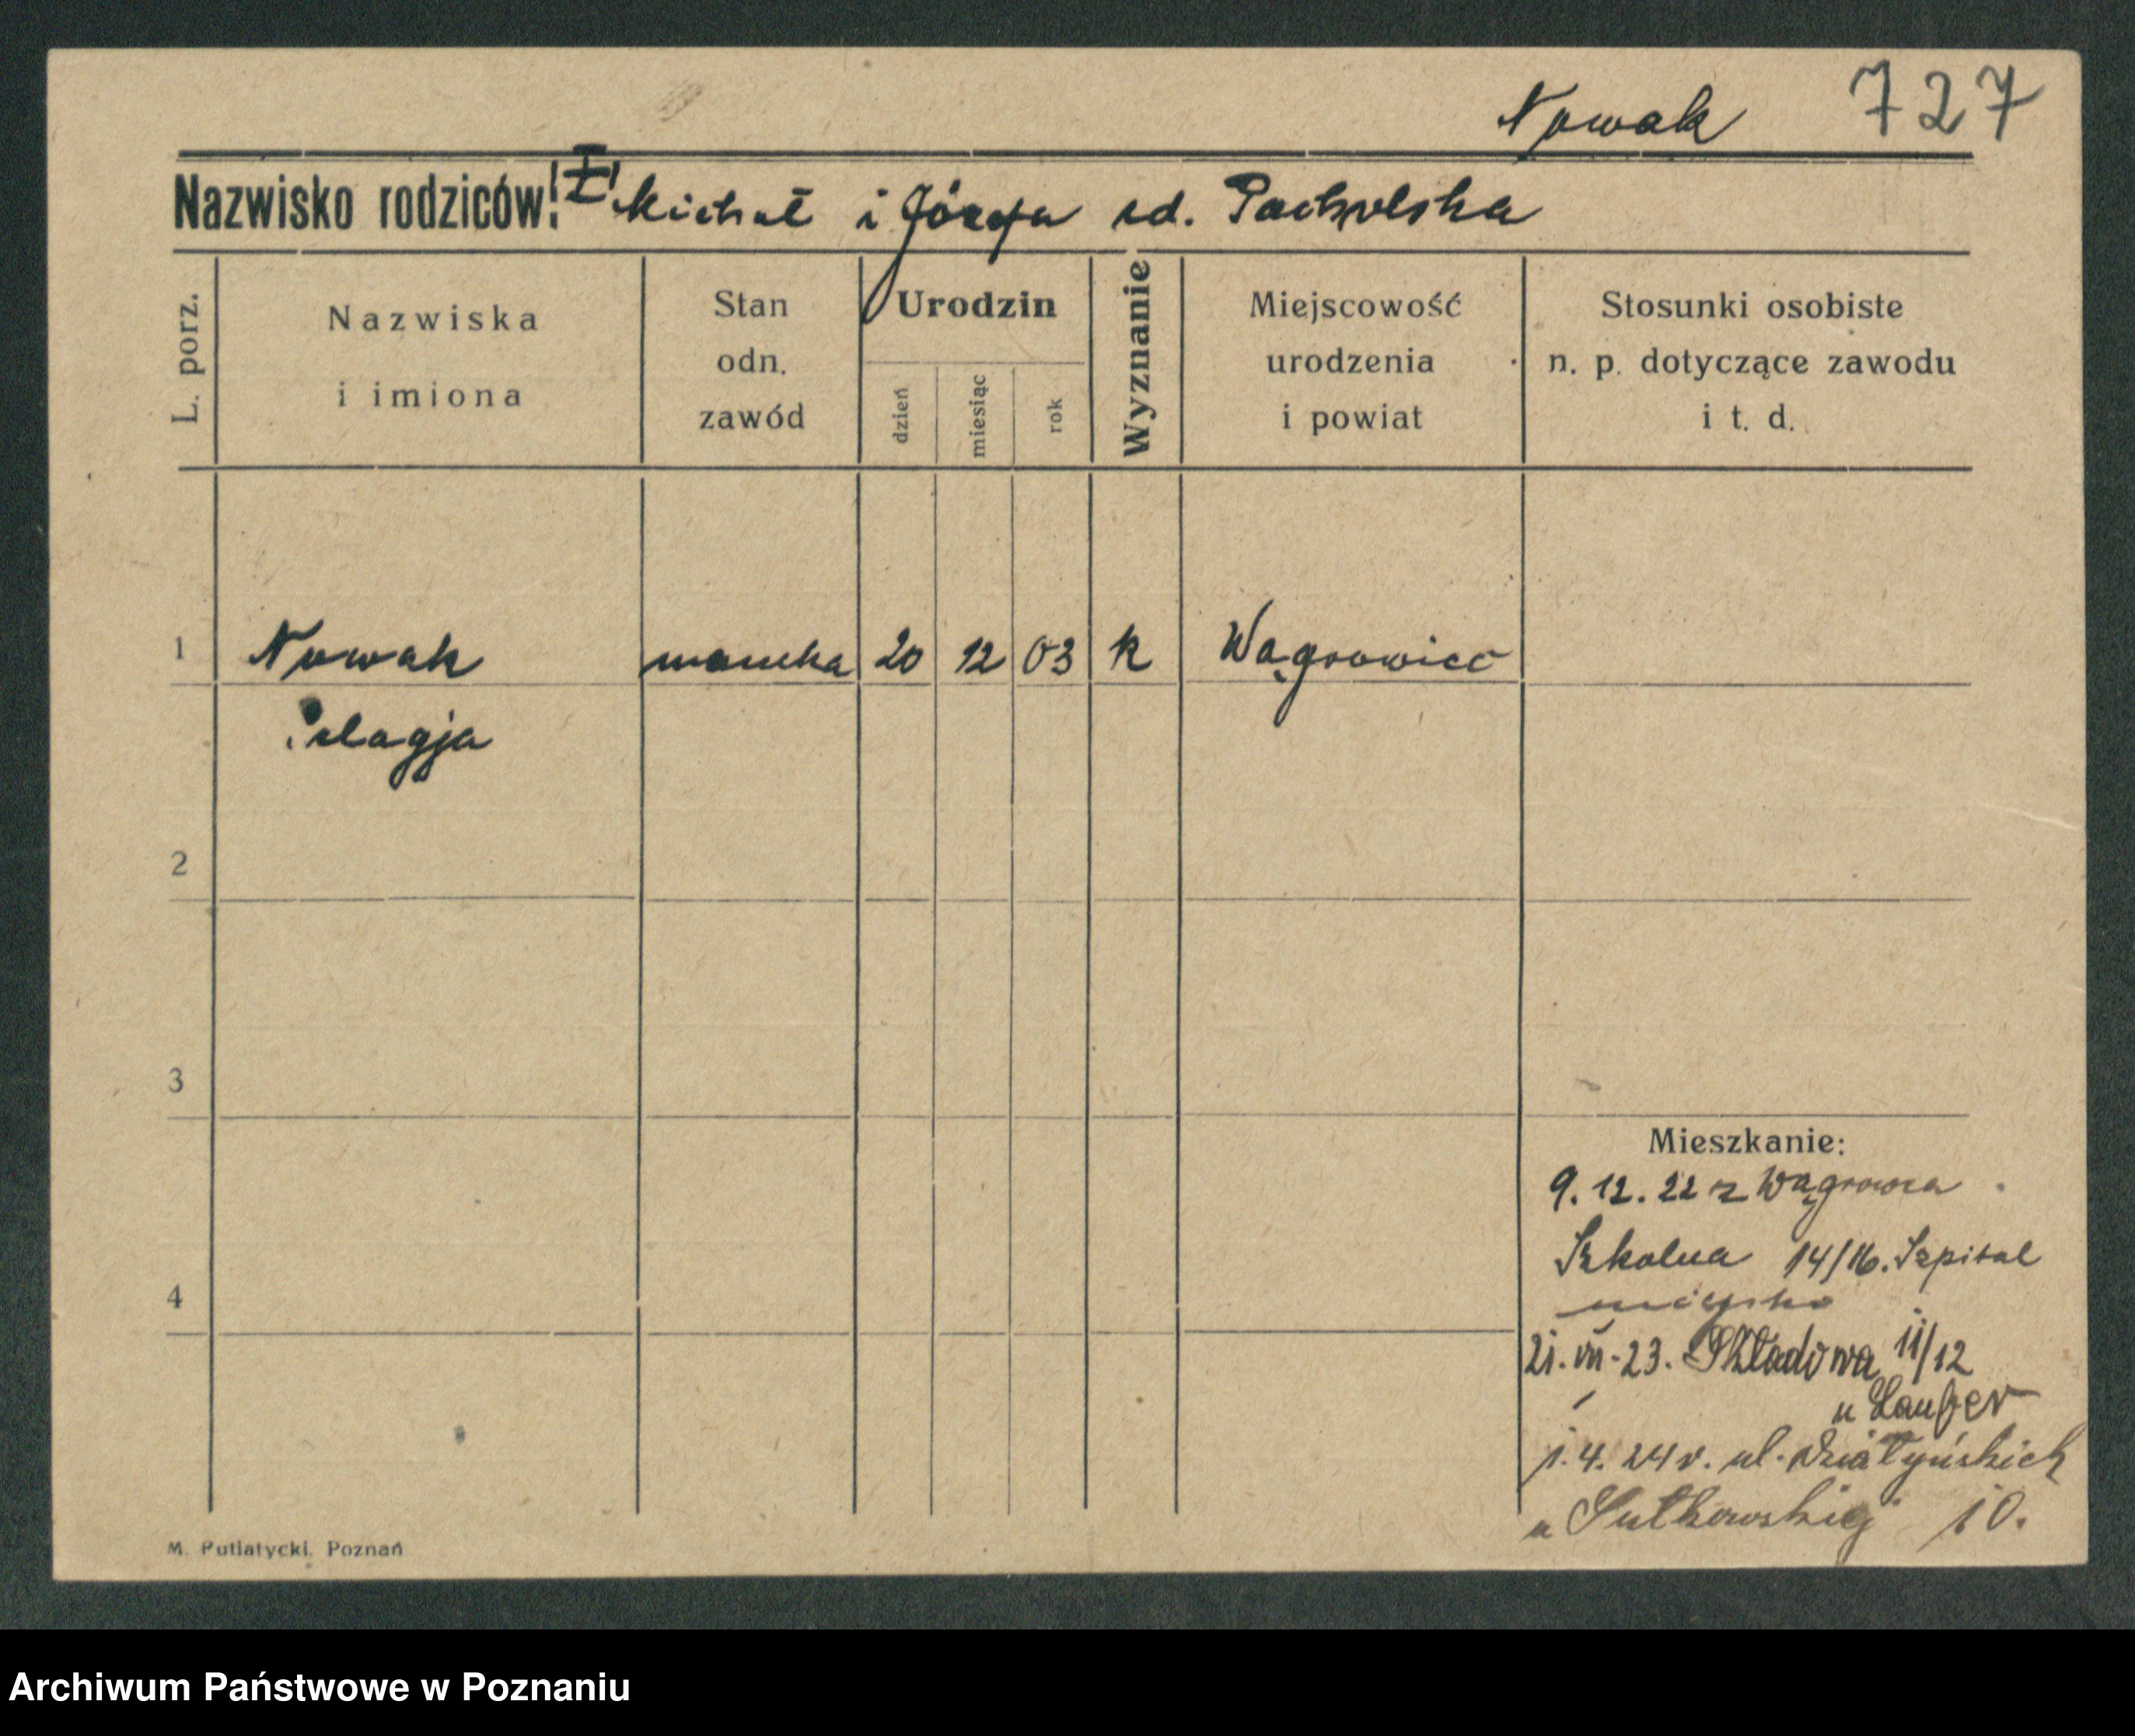 Nowak 727
Nazwisko rodziców: Michał i Józefa rd. Pacholska
L. porz.
Nazwiska
i imiona
Stan
odn.
zawód
Urodzin
dzień
miesiąc
rok
Wyznanie
Miejscowość
urodzenia
i powiat
Stosunki osobiste
n. p. dotyczące zawodu
i t. d.
1 Nowak 20 12 03 k Wągrowiec
Pelagja
2
3
4
Mieszkanie:
9. 12. 22 z Wągrowca
Szkolna 14/16. Szpital
miejski
21. VII. 23. Składowa 11/12
u
1. 4. 24 r. ul. Działyńskich
u Sutkowskiej 10.
M. Putiatycki, Poznań
Archiwum Państwowe w Poznaniu